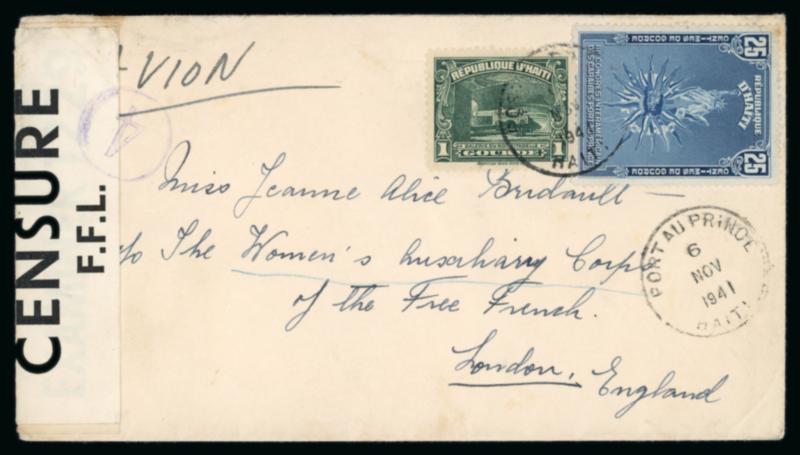 CENSURE
F.F.L.
-VION
A
RÉPUBLIQUE D'HAITI
1 GOURDE 1
25 CENTIMES DE GOURDE 25
RÉPUBLIQUE
D'HAITI
NOV
1941
HAITI
PORT AU PRINCE
6
NOV
1941
HAITI
Miss Jeanne Alice Bridault
c/o The Women's Auxiliary Corps
of the Free French.
London, England